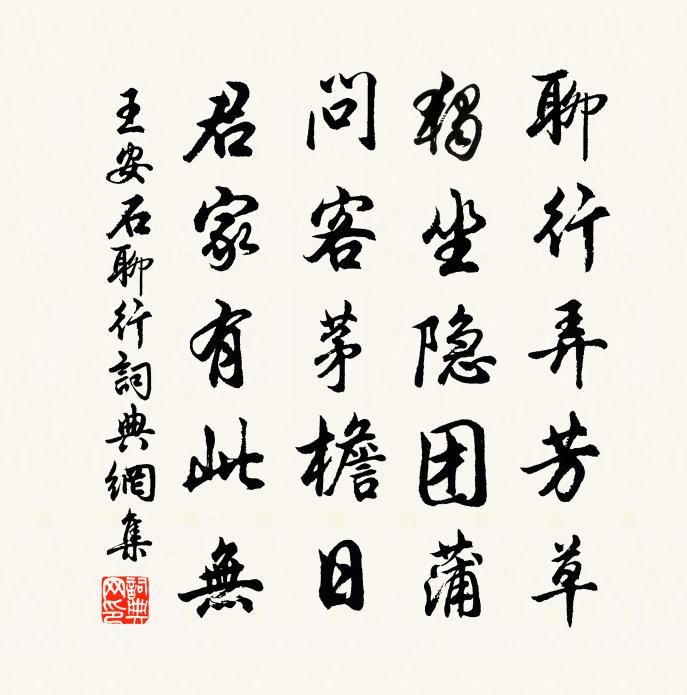 聊行弄芳草
獨坐隐团蒲
問客茅檐日
君家有此無
王安石聊行詞典網集
詞典网印